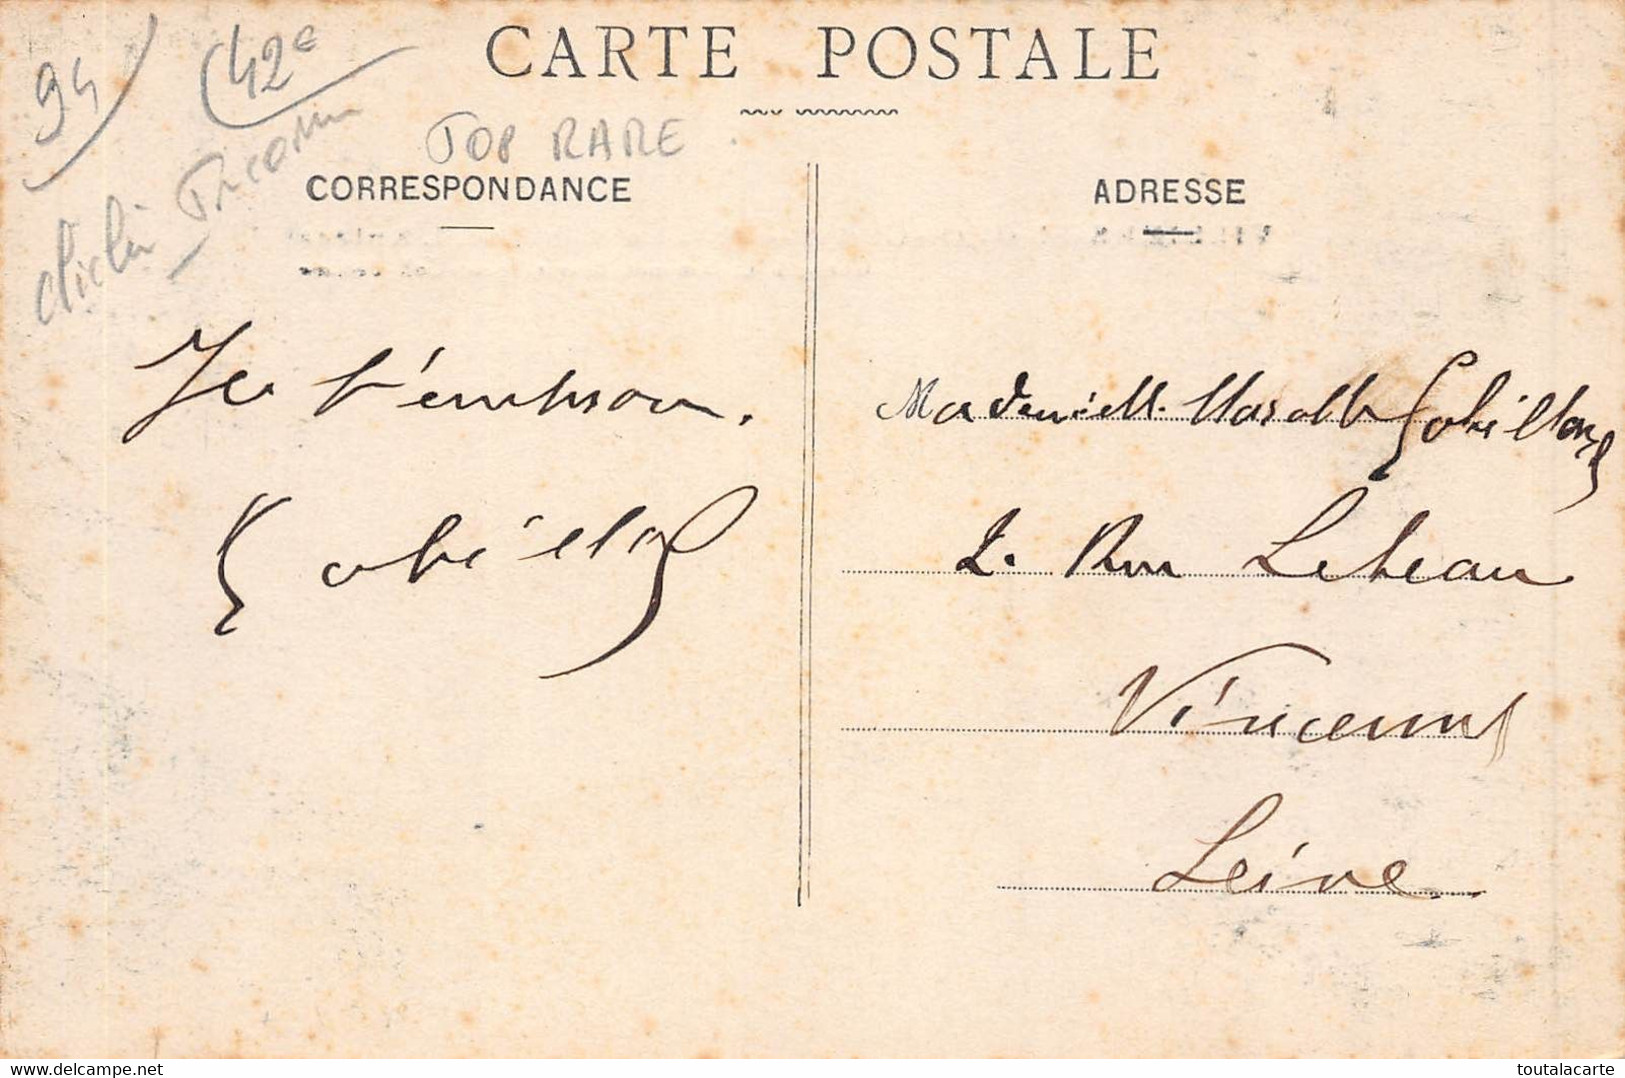 94
42e
CARTE POSTALE
TOP RARE
cliché Tricom
CORRESPONDANCE
ADRESSE
Je t'embrasse.
Gobillot
Mademoiselle Gobillot
2. Rue Lebeau
Vincennes
Seine
www.delcampe.net
toutalacarte